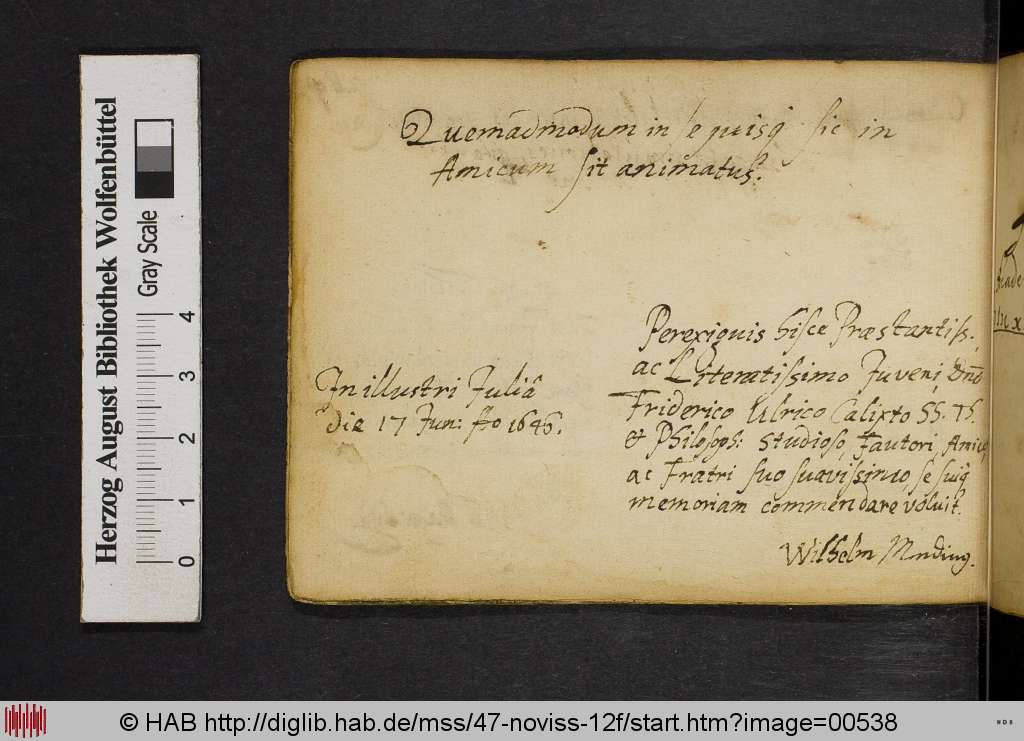 Quemadmodum in se quisq sic in
Amicum sit animatus.
Perexiguis hisce Præstantiss.
ac Literatissimo Juveni, Dnō
Friderico Ulrico Calixto SS. Th.
et Philosoph: Studioso, Fautori, Amico,
ac Fratri suo suavissimo se suiq
memoriam commendare voluit.
Wilhelm
In illustri Juliâ
Die 17 Jun: Aō 1646.
Herzog August Bibliothek Wolfenbüttel
Gray Scale
0 1 2 3 4
© HAB http://diglib.hab.de/mss/47-noviss-12f/start.htm?image=00538